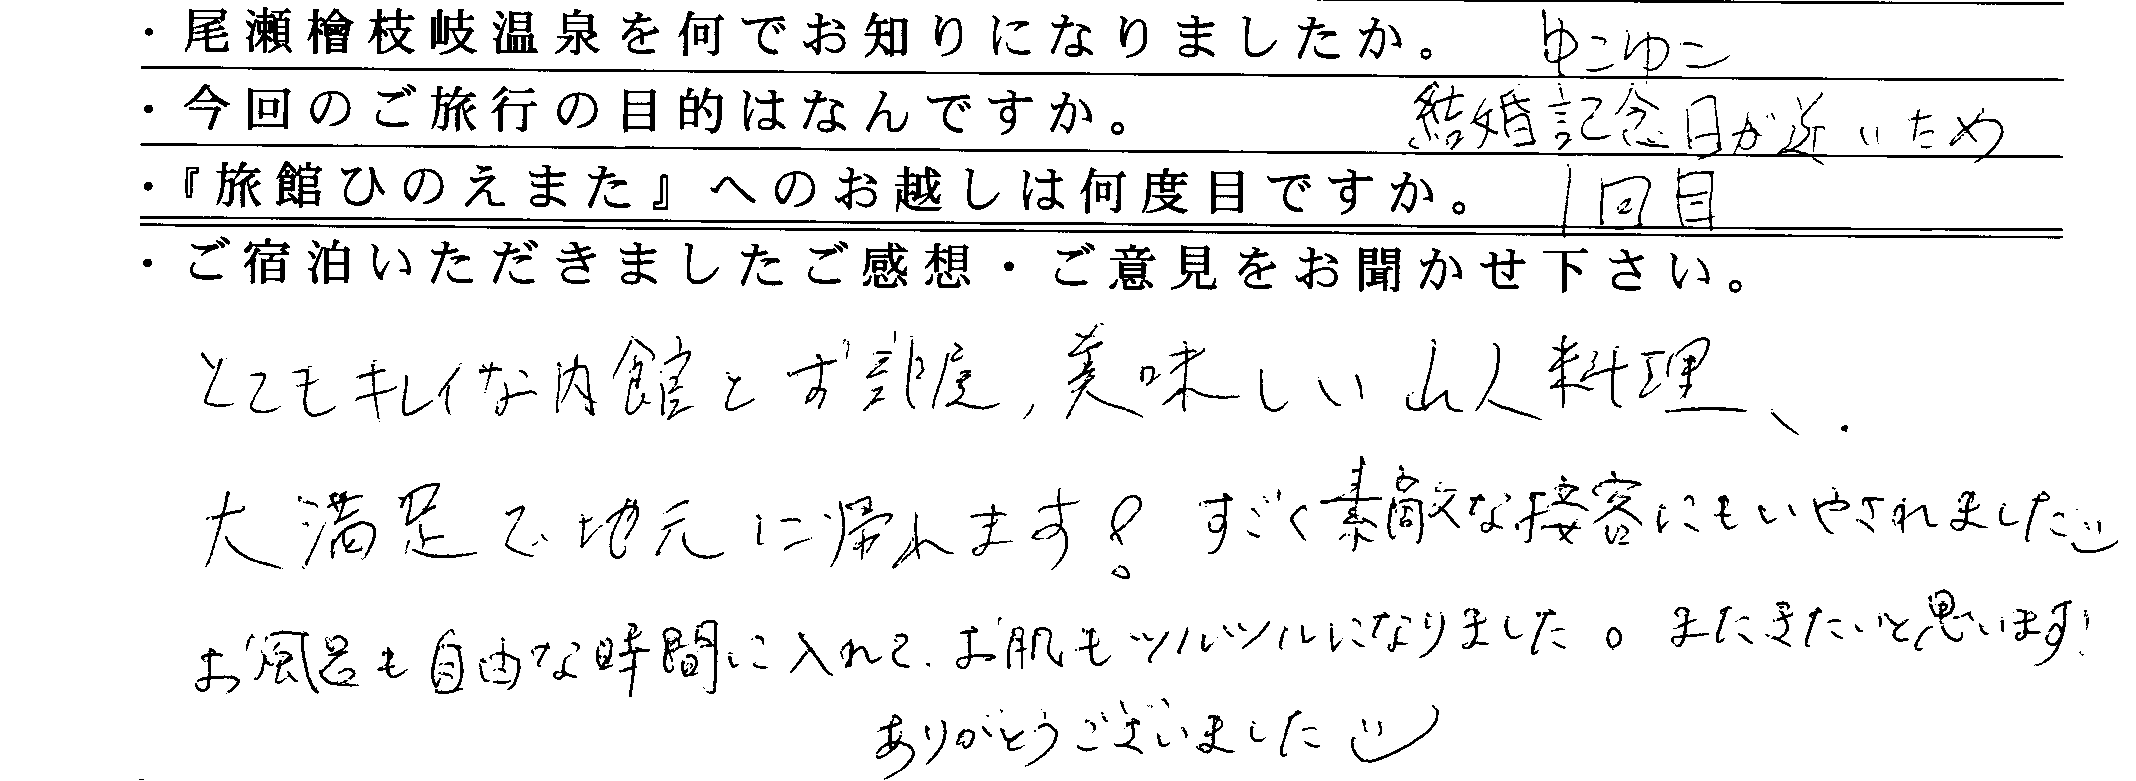 ・尾瀬檜枝岐温泉を何でお知りになりましたか。 ゆこゆこ
・今回のご旅行の目的はなんですか。 結婚記念日が近いため
・『旅館ひのえまた』へのお越しは何度目ですか。 1回目
・ご宿泊いただきましたご感想・ご意見をお聞かせ下さい。
とてもキレイな内館とお部屋、美味しい山人料理、
大満足で地元に帰れます! すごく素敵な接客にもいやされました
お風呂も自由な時間に入れて、お肌もツルツルになりました。またきたいと思います!
ありがとうございました